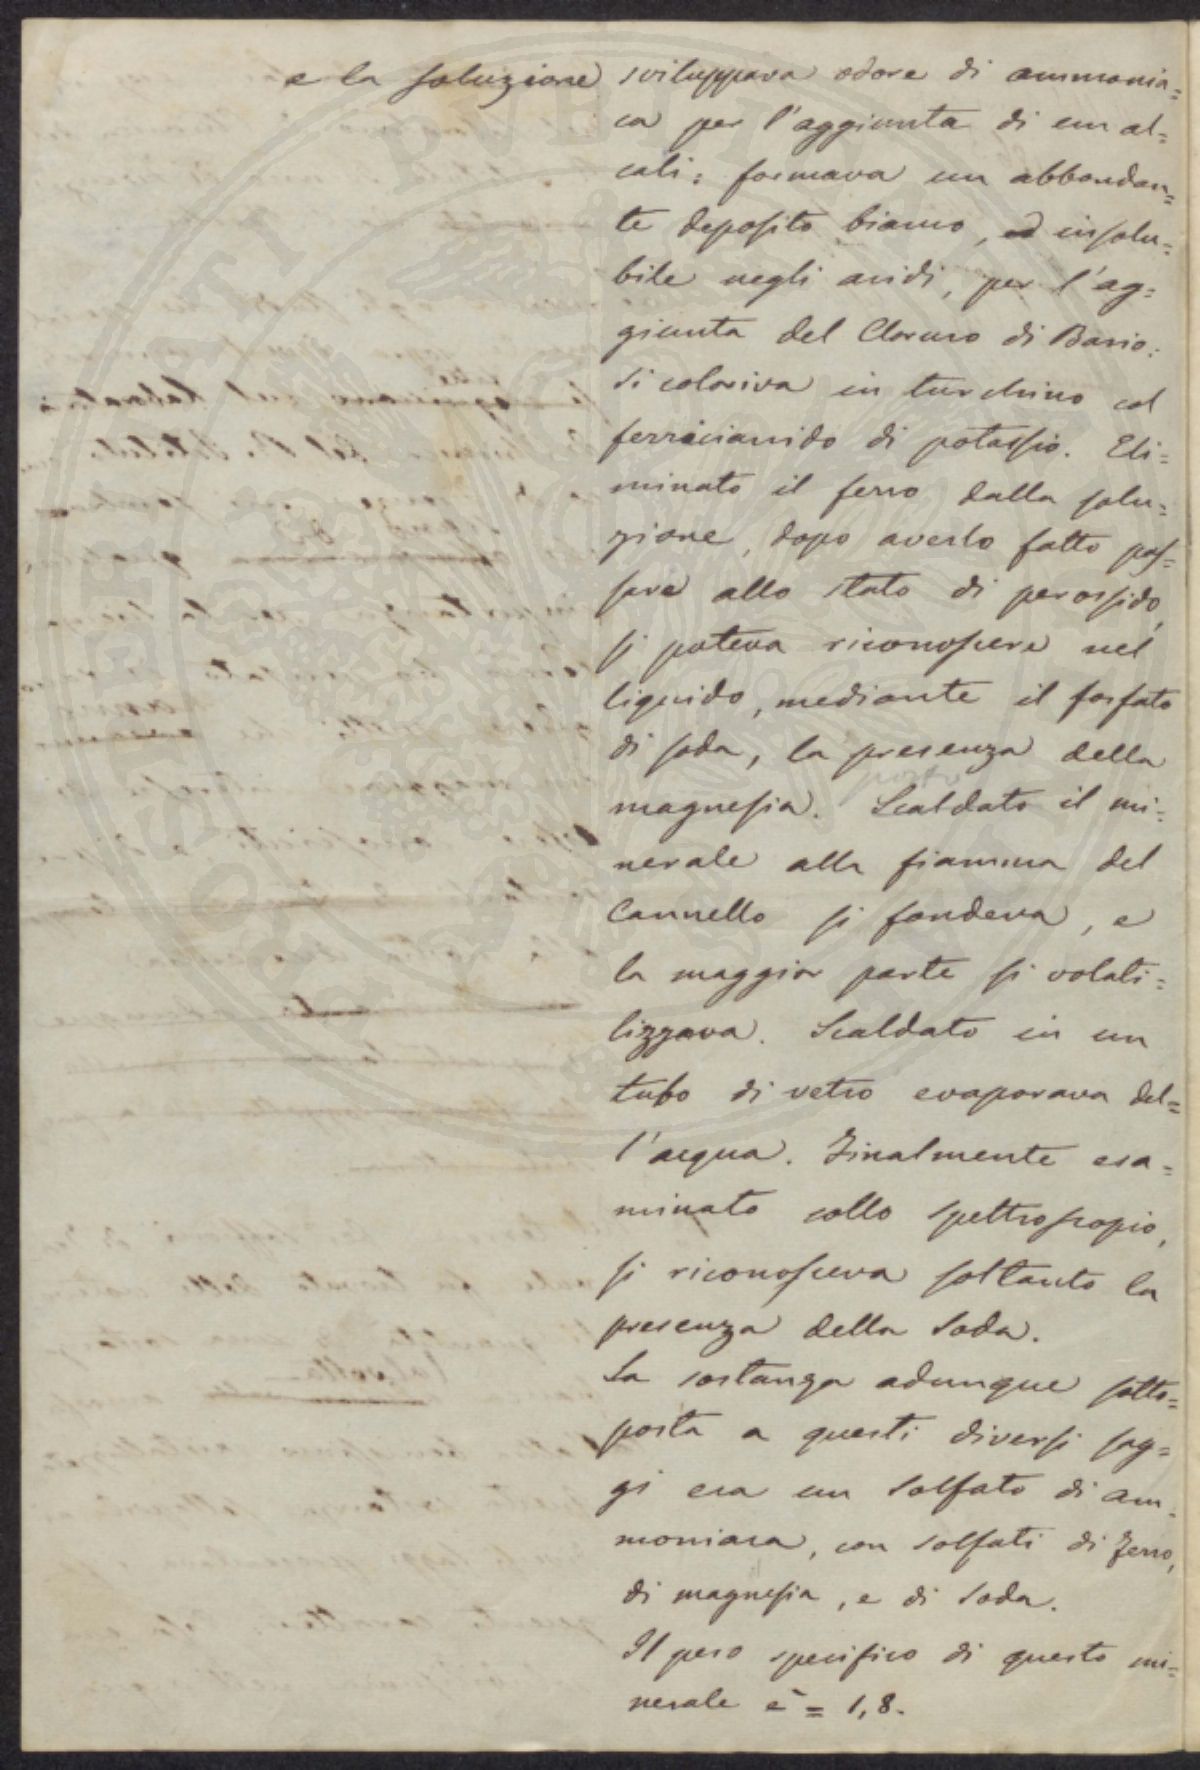 e la soluzione sviluppava odore di ammonia=
ca per l'aggiunta di un al=
cali: formava un abbondan=
te deposito bianco, ed insolu=
bile negli acidi, per l'ag=
giunta del Cloruro di Bario:
si coloriva in turchino col
ferricianido di potassio. Eli=
minato il ferro dalla solu=
zione, dopo averlo fatto pas=
sare allo stato di perossido,
si poteva riconoscere nel
liquido, mediante il fosfato
di soda, la presenza della
magnesia. Scaldato il mi=
nerale alla fiamma del
Cannello si fondeva, e
la maggior parte si volati=
lizzava. Scaldato in un
tubo di vetro evaporava del=
l'acqua. Finalmente esa=
minato collo spettroscopio,
si riconosceva soltanto la
presenza della Soda.
La sostanza adunque sotto=
posta a questi diversi sag=
gi era un Solfato di am=
moniaca, con solfati di Ferro,
di magnesia, e di Soda.
Il peso specifico di questo mi=
nerale è = 1,8.